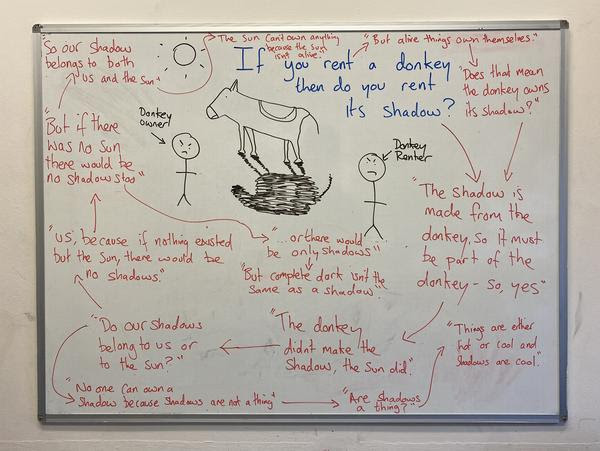 "So our Shadow
belongs to both
us and the Sun"
The Sun can't own anything
because the Sun
isn't alive."
"But alive things own themselves."
If you rent a donkey
then do you rent
its shadow?
"Does that mean
the donkey owns
its shadow?"
Donkey
owner
Donkey
Renter
"But if there
was no Sun
there would be
no shadows too"
"The shadow is
made from the
donkey. So it must
be part of the
donkey - so, yes"
"us, because if nothing existed
but the Sun, there would be
no shadows."
"...or there would
be only shadows"
"But complete dark isn't the
same as a shadow."
"The donkey
didn't make the
Shadow, the Sun did."
"Do our shadows
belong to us or
to the Sun?"
"No one can own a
Shadow because shadows are not a thing"
"Are shadows
a thing?"
"Things are either
hot or cool and
Shadows are cool."